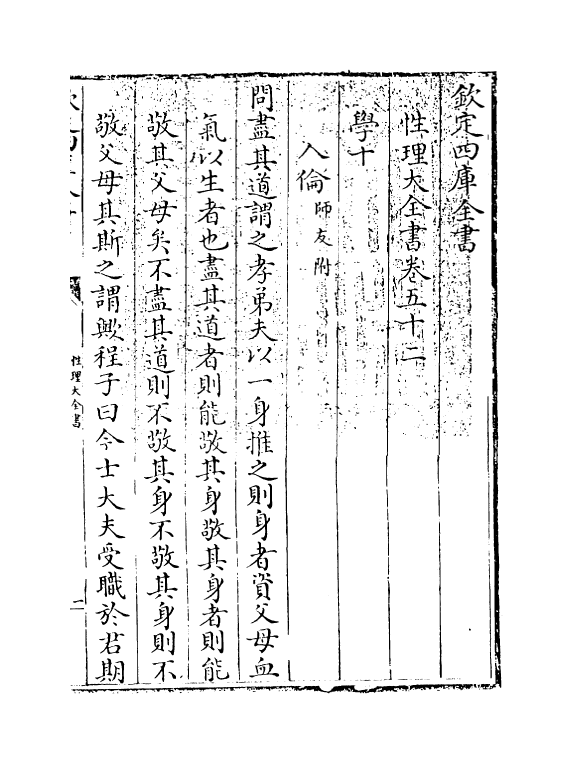 欽定四庫全書
性理大全書卷五十二
學十
人倫師友附
問盡其道謂之孝弟夫以一身推之則身者資父母血
氣以生者也盡其道者則能敬其身敬其身者則能
敬其父母矣不盡其道則不敬其身不敬其身則不
敬父母其斯之謂歟程子曰今士大夫受職於君期
性理大全書